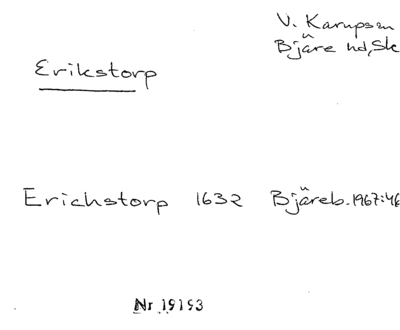 V. Karupsm
Bjäre hd, Sk
Erikstorp
Erichstorp 1632 Bjäreb. 1967:46
Nr 19193